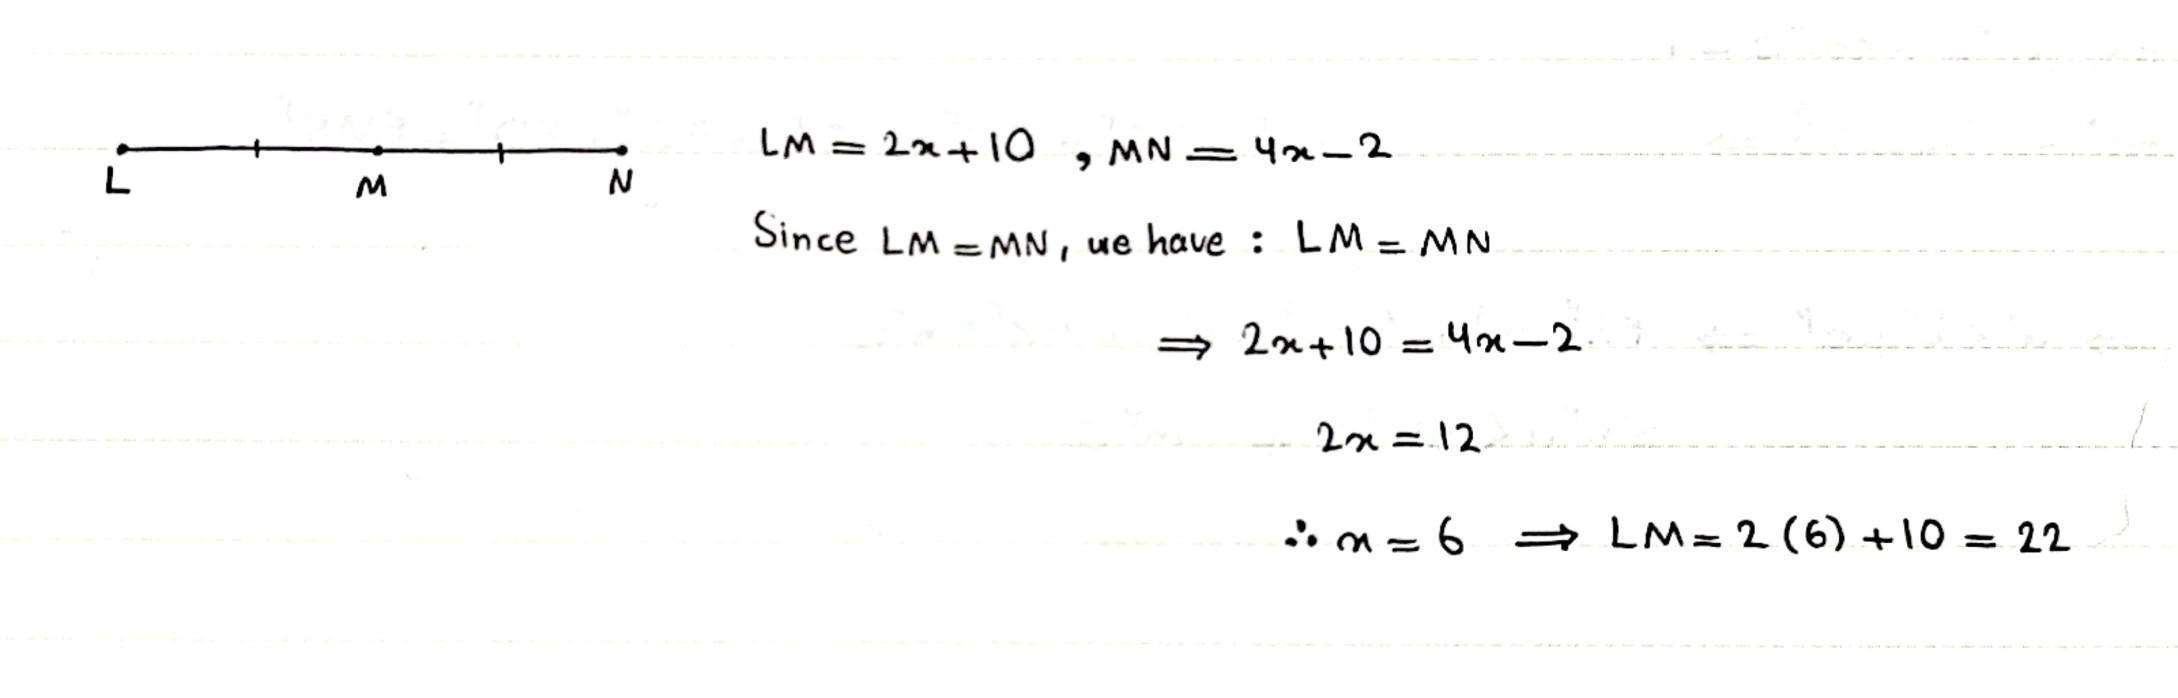 L M N
LM = 2x+10 , MN = 4x-2
Since LM = MN, we have : LM = MN
⇒ 2x+10 = 4x-2
2x = 12
∴ x = 6 ⇒ LM = 2(6) +10 = 22